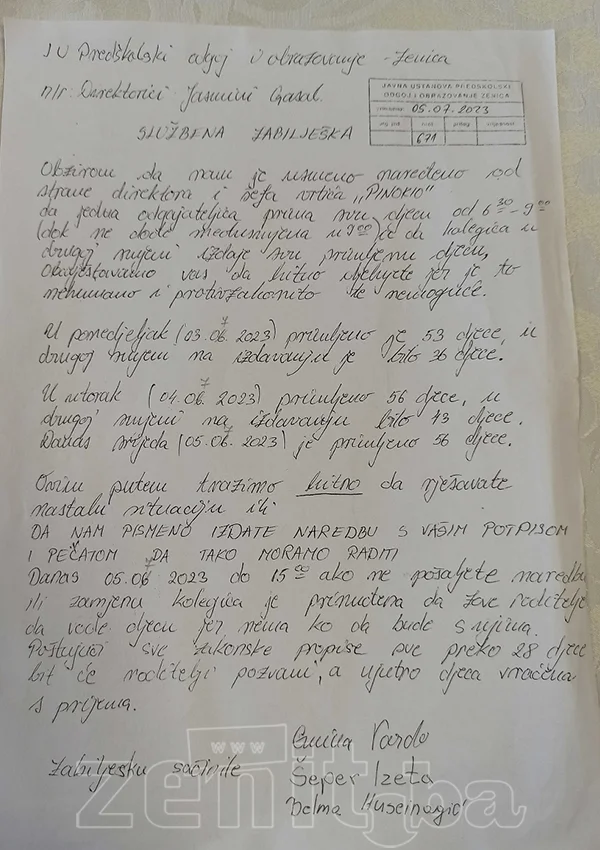 JU Predškolski odgoj i obrazovanje - Zenica
n/r Direktorici Jasmini Gasal.
JAVNA USTANOVA PREDŠKOLSKI
ODGOJ I OBRAZOVANJE ZENICA
05.07.2023
671
SLUŽBENA ZABILJEŠKA
Obzirom da nam je usmeno naređeno od
strane direktora i šefa vrtića „PINOKIO"
da jedna odgajateljica prima svu djecu od 6 30 - 9 00
(dok ne dođe međusmjena u 9 00) te da kolegica u
drugoj smjeni izdaje svu primljenu djecu,
Obavještavamo vas da hitno jer je to
nehumano i protivzakonito te nemoguće.
U ponedjeljak (03.07.2023) primljeno je 53 djece, u
drugoj smjeni na izdavanju je bilo 36 djece.
U utorak (04.07.2023) primljeno 56 djece, u
drugoj smjeni na izdavanju bilo 43 djece.
Danas srijeda (05.07.2023) je primljeno 56 djece.
Ovim putem tražimo hitno da rješavate
nastalu situaciju ili
DA NAM PISMENO IZDATE NAREDBU S VAŠIM POTPISOM
I PEČATOM DA TAKO MORAMO RADITI
Danas 05.07 2023 do 15 00 ako ne pošaljete naredbu
ili zamjenu kolegica je prinuđena da zove roditelje
da vode djecu jer nema ko da bude s njima.
Poštujući sve zakonske propise sve preko 28 djece
bit će roditelji pozvani, a ujutro djeca vraćena
s prijema.
Zabilješku sačinile
Emina Vardo
Šeper Izeta
Delma Huseinagić
zenit.ba